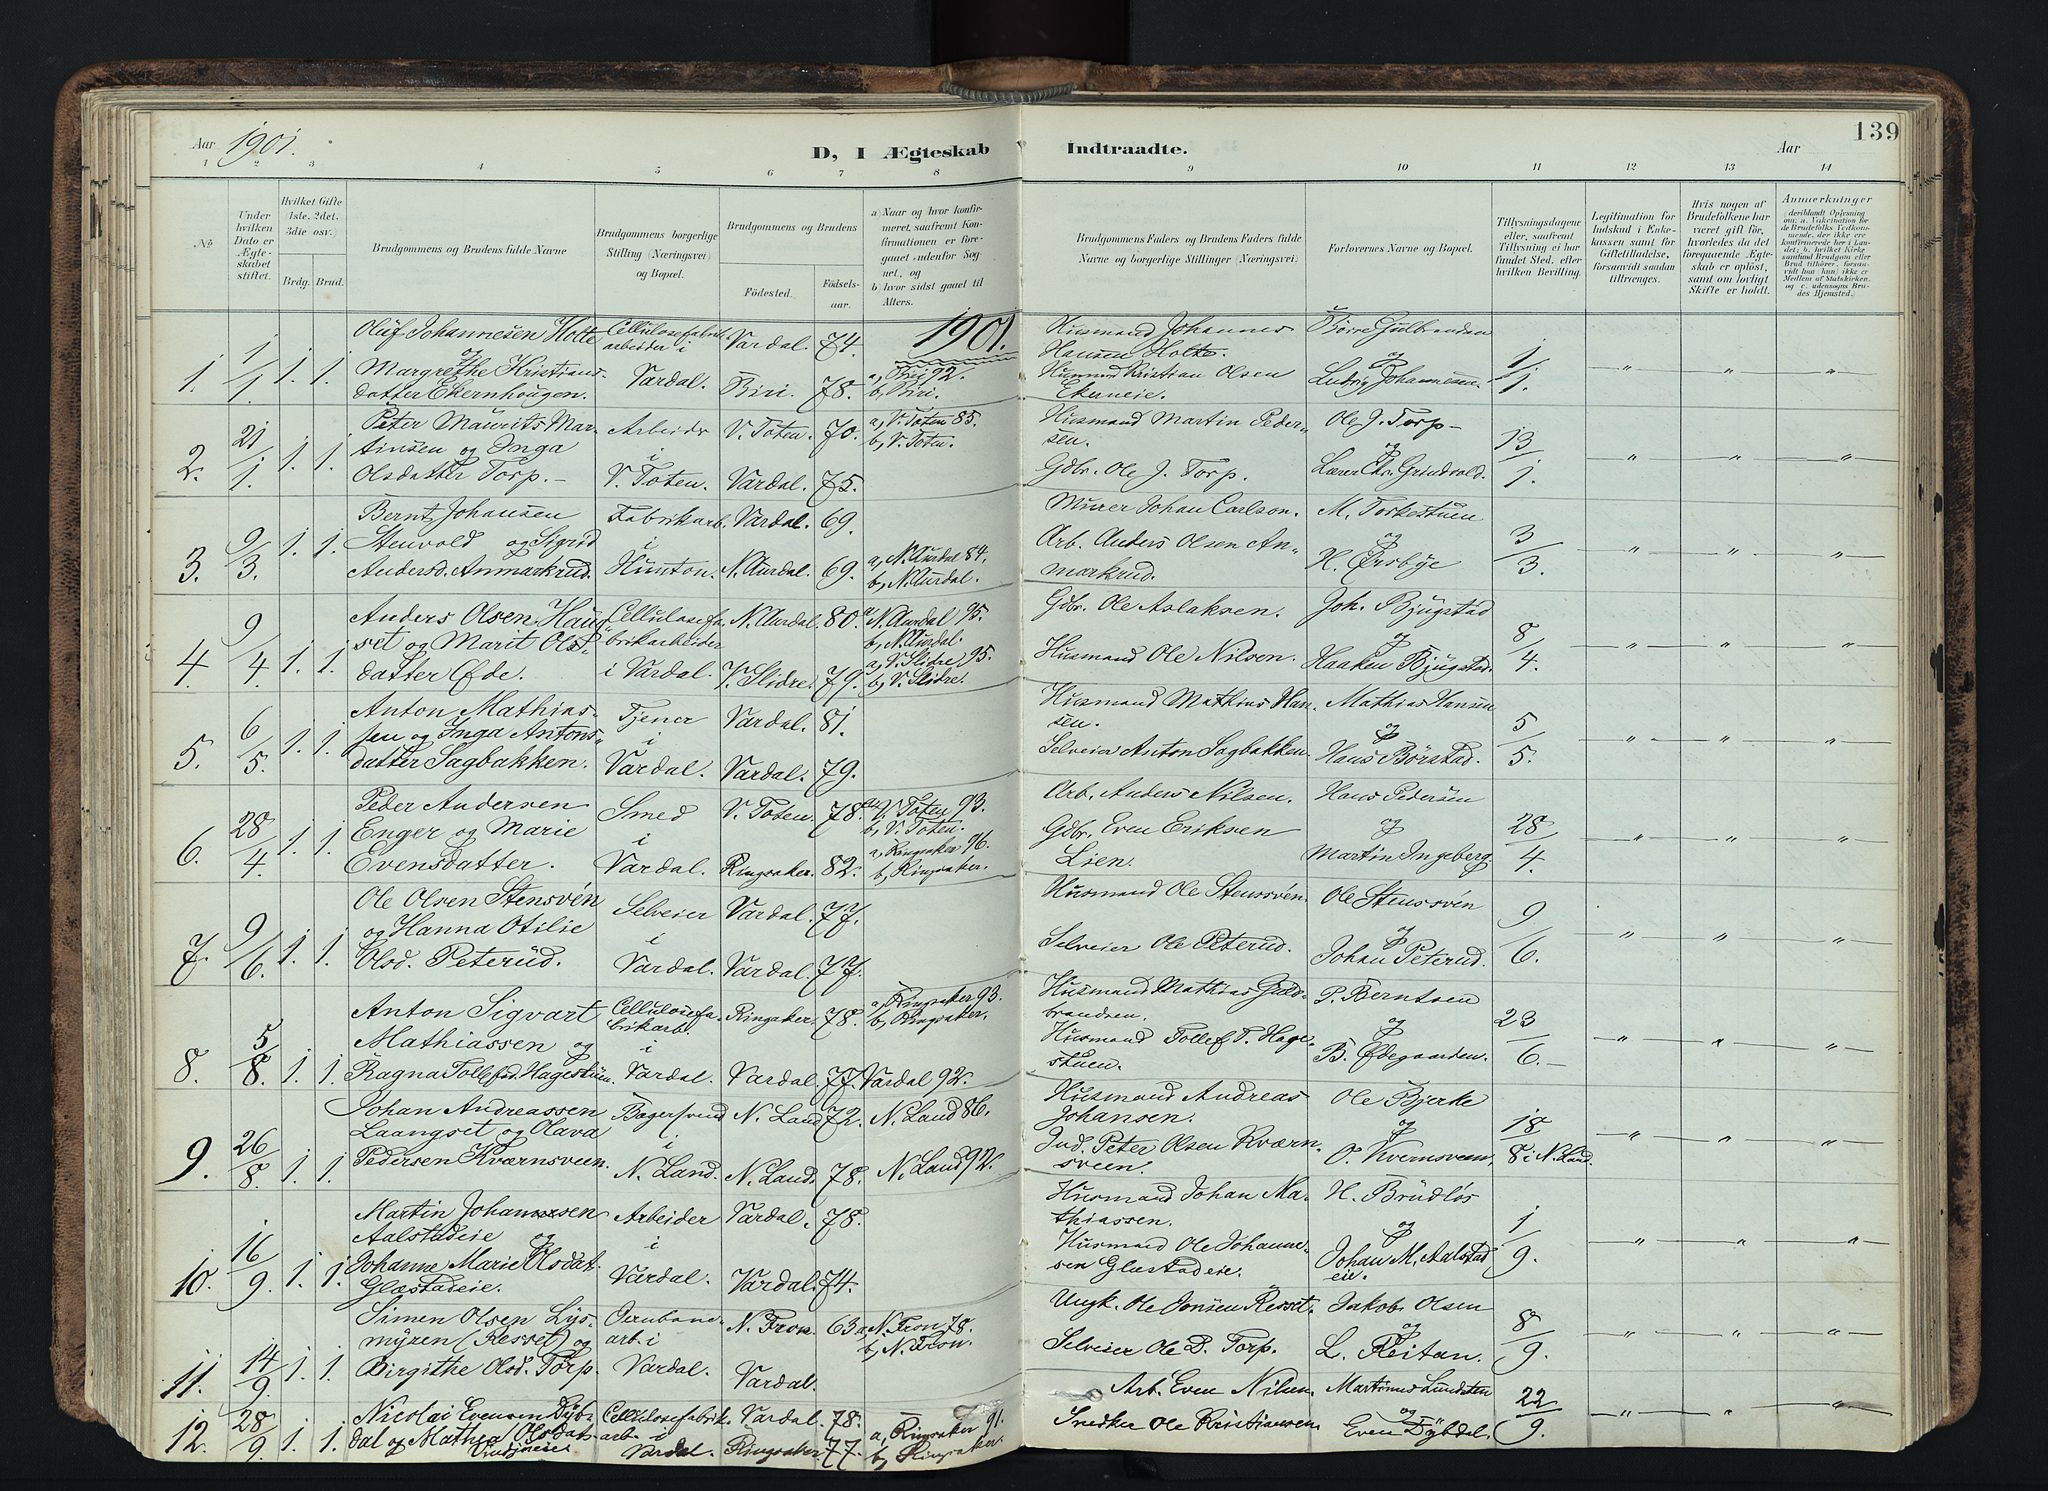 Aar 1901.
D, I Ægteskab Indtraadte.
Aar
139
1 2 3 4 5 6 7 8 9 10 11 12 13 14
No
Under hvilken Dato er Ægteskabet stiftet.
Hvilket Gifte 1ste, 2det, 3die osv.
Brdg. Brud.
Brudgommens og Brudens fulde Navne
Brudgommens borgerlige Stilling (Næringsvei) og Bopæl.
Brudgommens og Brudens
Fødested.
Fødselsaar.
a) Naar og hvor konfirmeret, saafremt Konfirmationen er foregaaet udenfor Sognet, og
b) hvor sidst gaaet til Alters.
Brudgommens Faders og Brudens Faders fulde Navne og borgerlige Stillinger (Næringsvei)
Forlovernes Navne og Bopæl.
Tillysningsdagene eller, saafremt Tillysning ei har fundet Sted, efter hvilken Bevilling.
Legitimation for Indskud i Enkekassen samt for Giftetilladelse, forsaavidt saadan tiltrænges.
Hvis nogen af Brudefolkene har været gift, hvorledes da det foregaaende Ægteskab er opløst, samt om lovligt Skifte er holdt.
Anmerkninger
1901.
1. 1/1 1. 1. Oluf Johannesen Holte og Margrethe Kristiansdatter Ekernhougen. Cellulosefabrikarbeider i Vardal. Vardal. 74. Biri. 78. a, Biri 92. b, Biri. Husmand Johannes Hansen Holte. Husmand Kristian Olsen Ekerneie. Børre Gulbrandsen og Ludvig Johannesen. 1/1. " " "
2. 21/1. 1. 1. Peter Maurits Martinsen og Inga Olsdatter Torp. Arbeider i V. Toten. V. Toten. 70. Vardal. 75. a, V. Toten 85. b, V. Toten. Husmand Martin Pedersen. Gdbr. Ole J. Torp. Ole J. Torp og Lærer Chr. Grindvold. 13/1. " " "
3. 9/3. 1. 1. Bernt Johansen Stenvold og Sigrid Andersd. Anmarkrud. Fabrikarb. i Hunton. Vardal. 69. N. Aurdal. 69. a, N. Aurdal 84. b, N. Aurdal. Murer Johan Carlson. Arb. Anders Olsen Anmarkrud. M. Torkestuen og H. Ørsbye 3/3. " " "
4. 9/4. 1. 1. Anders Olsen Hauset og Marit Olsdatter Øde. Cellulosefabrikarbeider i Vardal. N. Aurdal. 80. V. Slidre. 79. a, N. Aurdal 95. b, N. Aurdal. a, V. Slidre 95. b, V. Slidre. Gdbr. Ole Aslaksen. Husmand Ole Nilsen. Joh. Bjugstad og Haaken Bjugstad. 8/4. " " "
5. 6/5. 1. 1. Anton Mathiassen og Inga Antonsdatter Sagbakken. Tjener i Vardal. Vardal. 81. Vardal. 79. Husmand Mathias Hansen. Selveier Anton Sagbakken. Mathias Hansen og Hans Børstad. 5/5. " " "
6. 28/4. 1. 1. Peder Andersen Enger og Marie Evensdatter. Smed i Vardal. V. Toten. 78. Ringsaker. 82. a, V. Toten 93. b, V. Toten. a, Ringsaker 96. b, Ringsaker. Arb. Anders Nilsen. Gdbr. Even Eriksen Lien. Hans Pedersen og Martin Ingeberg. 28/4. " " "
7. 9/6. 1. 1. Ole Olsen Stensvén og Hanna Otilie Olsd. Peterud. Selveier i Vardal. Vardal. 77. Vardal. 77. Husmand Ole Stenssvén. Selveier Ole Peterud. Ole Stenssvén og Johan Peterud. 9/6. " " "
8. 5/8. 1. 1. Anton Sigvart Mathiassen og Ragna Tollefsd. Hagestuen. Cellulosefabrikarb. i Vardal. Ringsaker. 78. Vardal. 77. a, Ringsaker 93. b, Ringsaker. Vardal 92. Husmand Mathias Guldbrandsen. Husmand Tollef T. Hagestuen. P. Berntsen og B. Ødegaarden. 23/6. " " "
9. 26/8. 1. 1. Johan Andreassen Laangset og Olava Pedersen Kværnsveen. Bagersvend i N. Land. N. Land 72. N. Land. 78. N. Land 86. N. Land 92. Husmand Andreas Johansen. Ind. Peter Olsen Kværnsveen. Ole Bjerke og O. Kvernsveen. 18/8 i N. Land. " " "
10. 16/9. 1. 1. Martin Johannesen Aalstadeie og Johanne Marie Olsdat. Glæstadeie. Arbeider i Vardal. Vardal. 78. Vardal. 74. Husmand Johan Mathiassen. Husmand Ole Johannesen Glæstadeie. H. Brudløs og Johan M. Aalstadeie. 1/9. " " "
11. 14/9. 1. 1. Simen Olsen Lysmyren (Resset) og Birgithe Olsd. Torp. Jernbanearb. i Vardal. N. Fron. 63 Vardal. a, N. Fron 78. b, N. Fron. Ungk. Ole Jonsen Resset. Selveier Ole D. Torp. Jakob Olsen og L. Reitan. 8/9. " " "
12. 28/9. 1. 1. Nicolai Evensen Dybdal og Mathea Olsdat. Cellulosefabrikarb. i Vardal. Vardal. 78. Ringsaker 77. a, Ringsaker 91. b, Ringsaker. Arb. Even Nilsen. Snedker Ole Kristiansen. Martinus Lundsten og Even Dybdal. 22/9. " " "